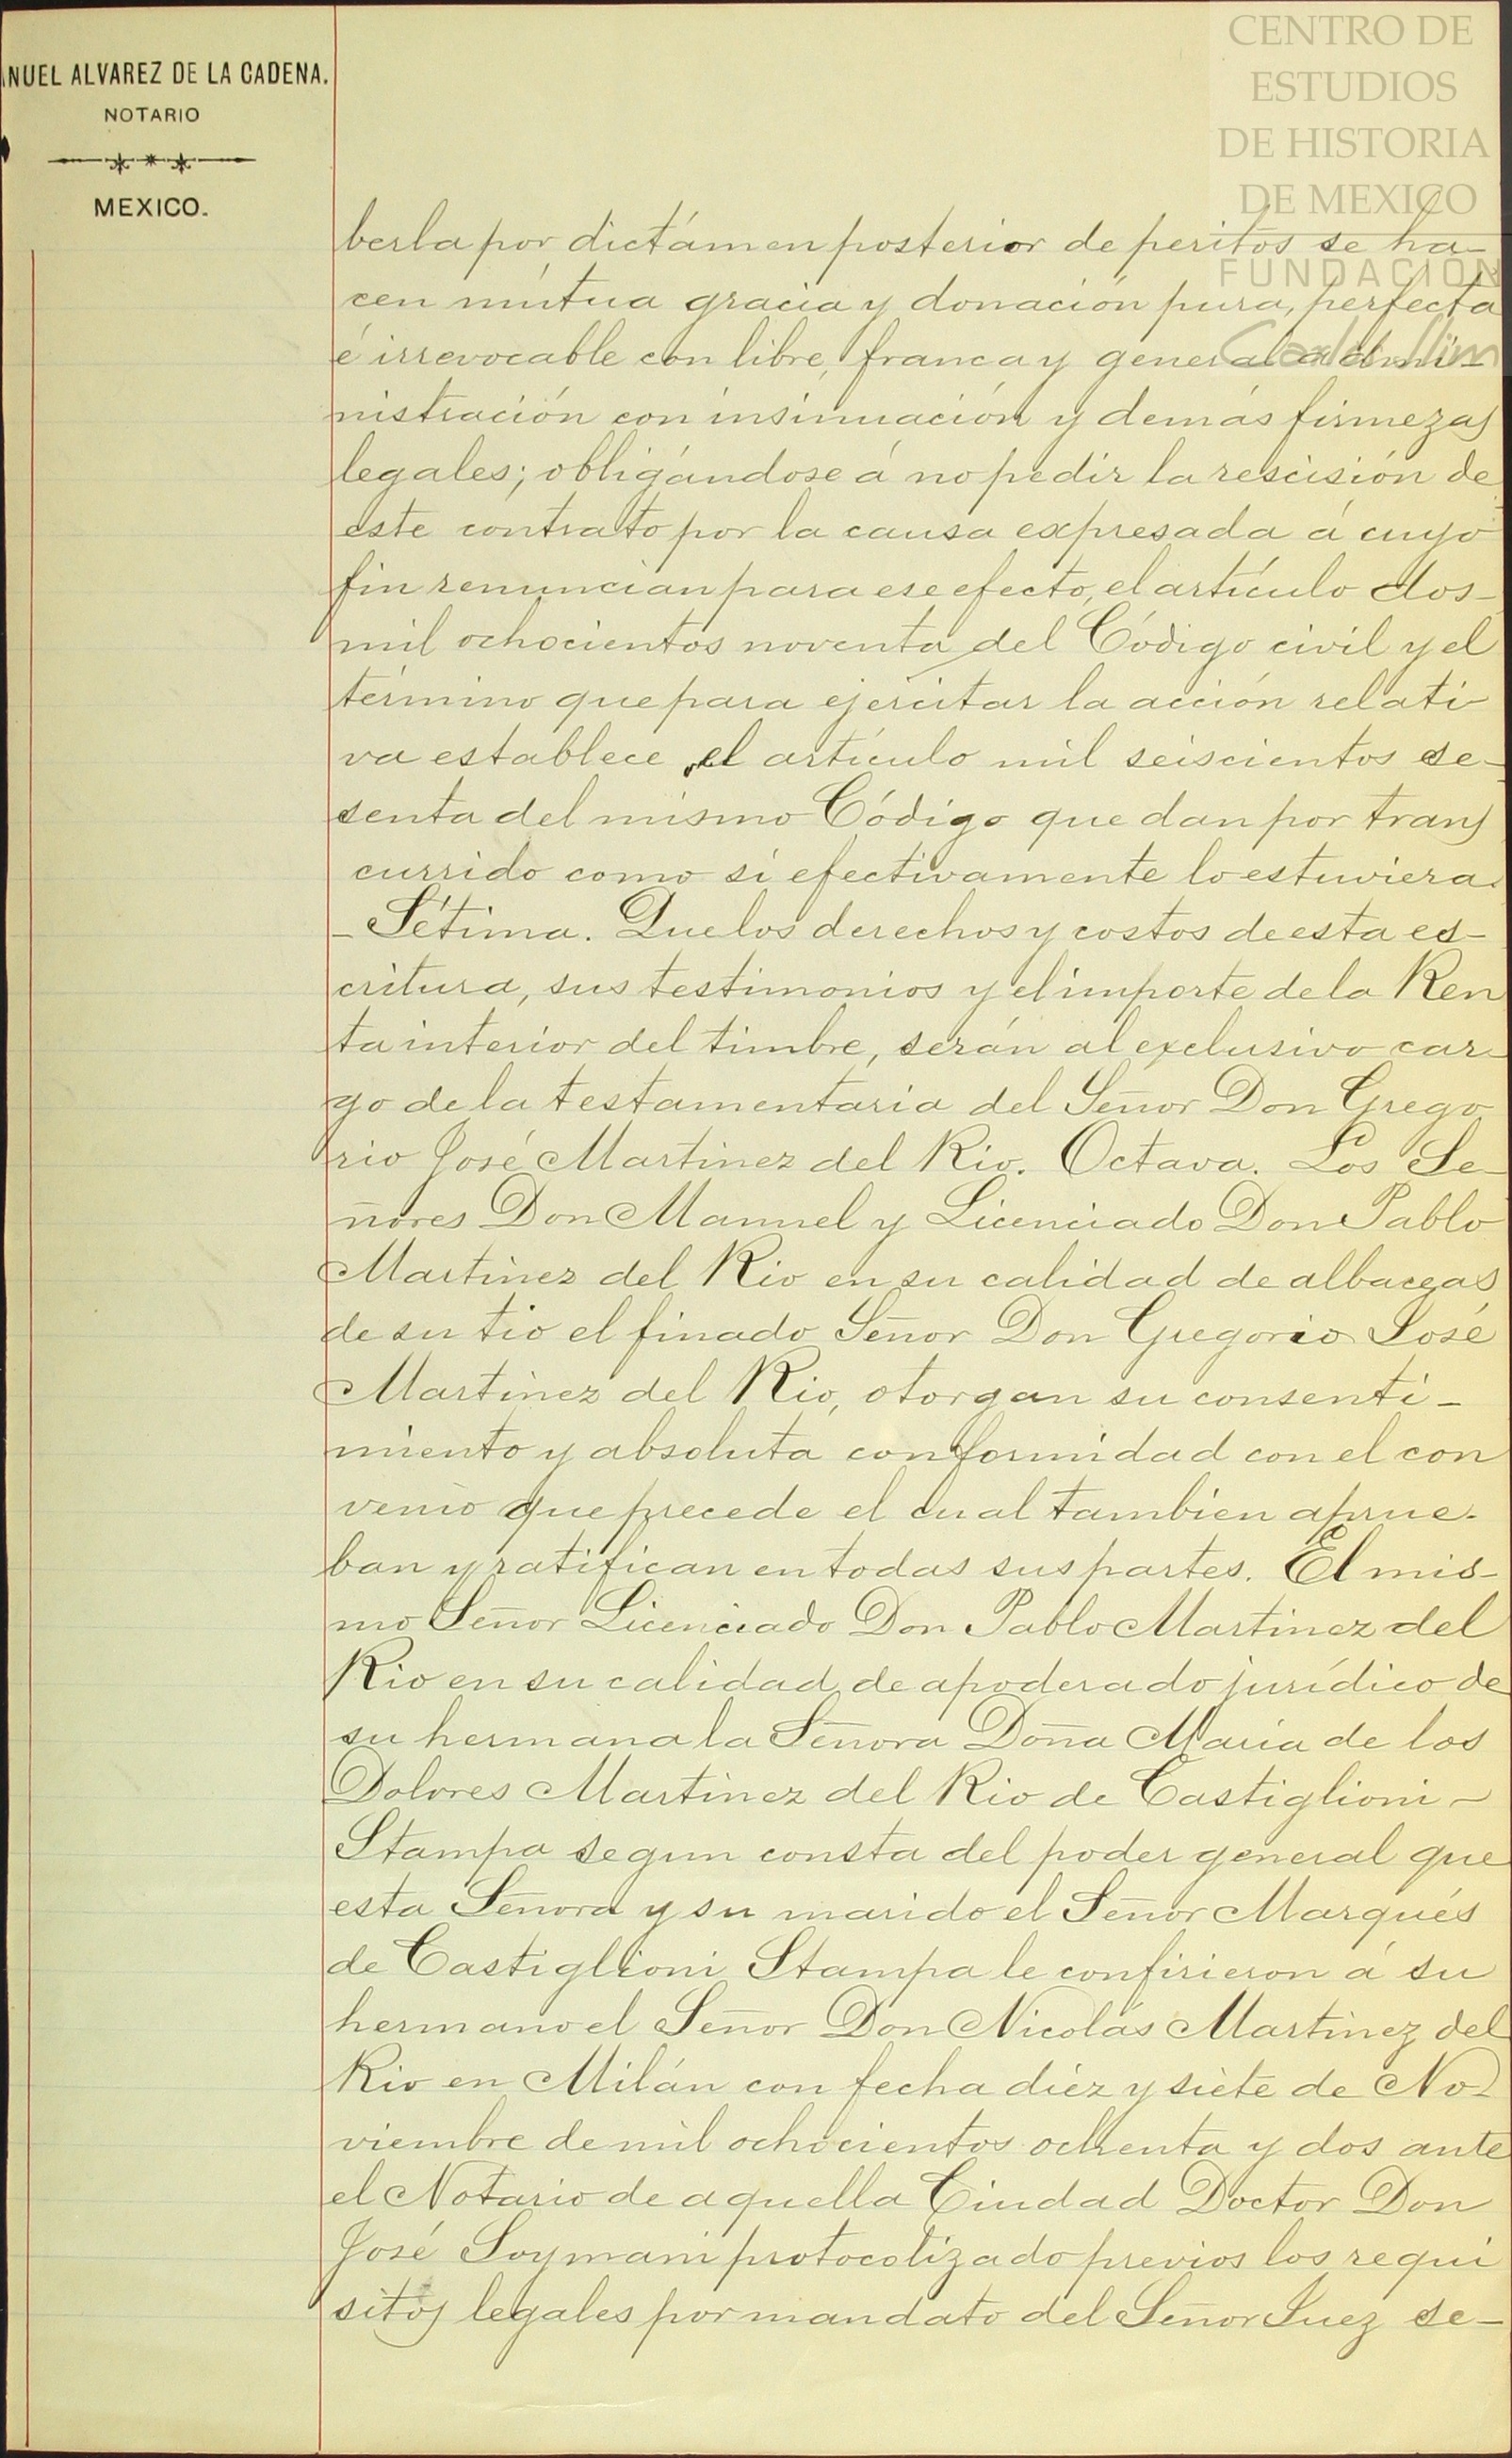 NUEL ALVAREZ DE LA CADENA.
NOTARIO
MEXICO.
CENTRO DE
ESTUDIOS
DE HISTORIA
DE MEXICO
FUNDACIÓN
Carlos Slim
berla por dictámen posterior de peritos se ha-
cen mútua gracia y donación pura, perfecta
é irrevocable con libre, franca y general admi-
nistración con insinuación y demás firmezas
legales; obligándose á no pedir la rescisión de
este contrato por la causa expresada á cuyo
fin renuncian para ese efecto, el artículo dos-
mil ochocientos noventa del Código civil y el
término que para ejercitar la acción relati-
va establece el artículo mil seiscientos se-
senta del mismo Código que dan por trans
currido como si efectivamente lo estuviera.
- Sétima. Que los derechos y costos de esta es-
critura, sus testimonios y el importe de la Ren
ta interior del timbre, serán al exclusivo car-
go de la testamentaria del Señor Don Grego
rio José Martinez del Rio. Octava. Los Se-
ñores Don Manuel y Licenciado Don Pablo
Martinez del Rio en su calidad de albaceas
de su tio el finado Señor Don Gregorio José
Martinez del Rio, otorgan su consenti-
miento y absoluta conformidad con el con
venio que precede el cual tambien aprue-
ban y ratifican en todas sus partes. El mis-
mo Señor Licenciado Don Pablo Martinez del
Rio en su calidad de apoderado jurídico de
su hermana la Señora Doña Maria de los
Dolores Martinez del Rio de Castiglioni-
Stampa segun consta del poder general que
esta Señora y su marido el Señor Marqués
de Castiglioni Stampa le confirieron á su
hermano el Señor Don Nicolás Martinez del
Rio en Milán con fecha diez y siete de No-
viembre de mil ochocientos ochenta y dos ante
el Notario de aquella Ciudad Doctor Don
José Soymani protocolizado previos los requi
sitos legales por mandato del Señor Juez se-